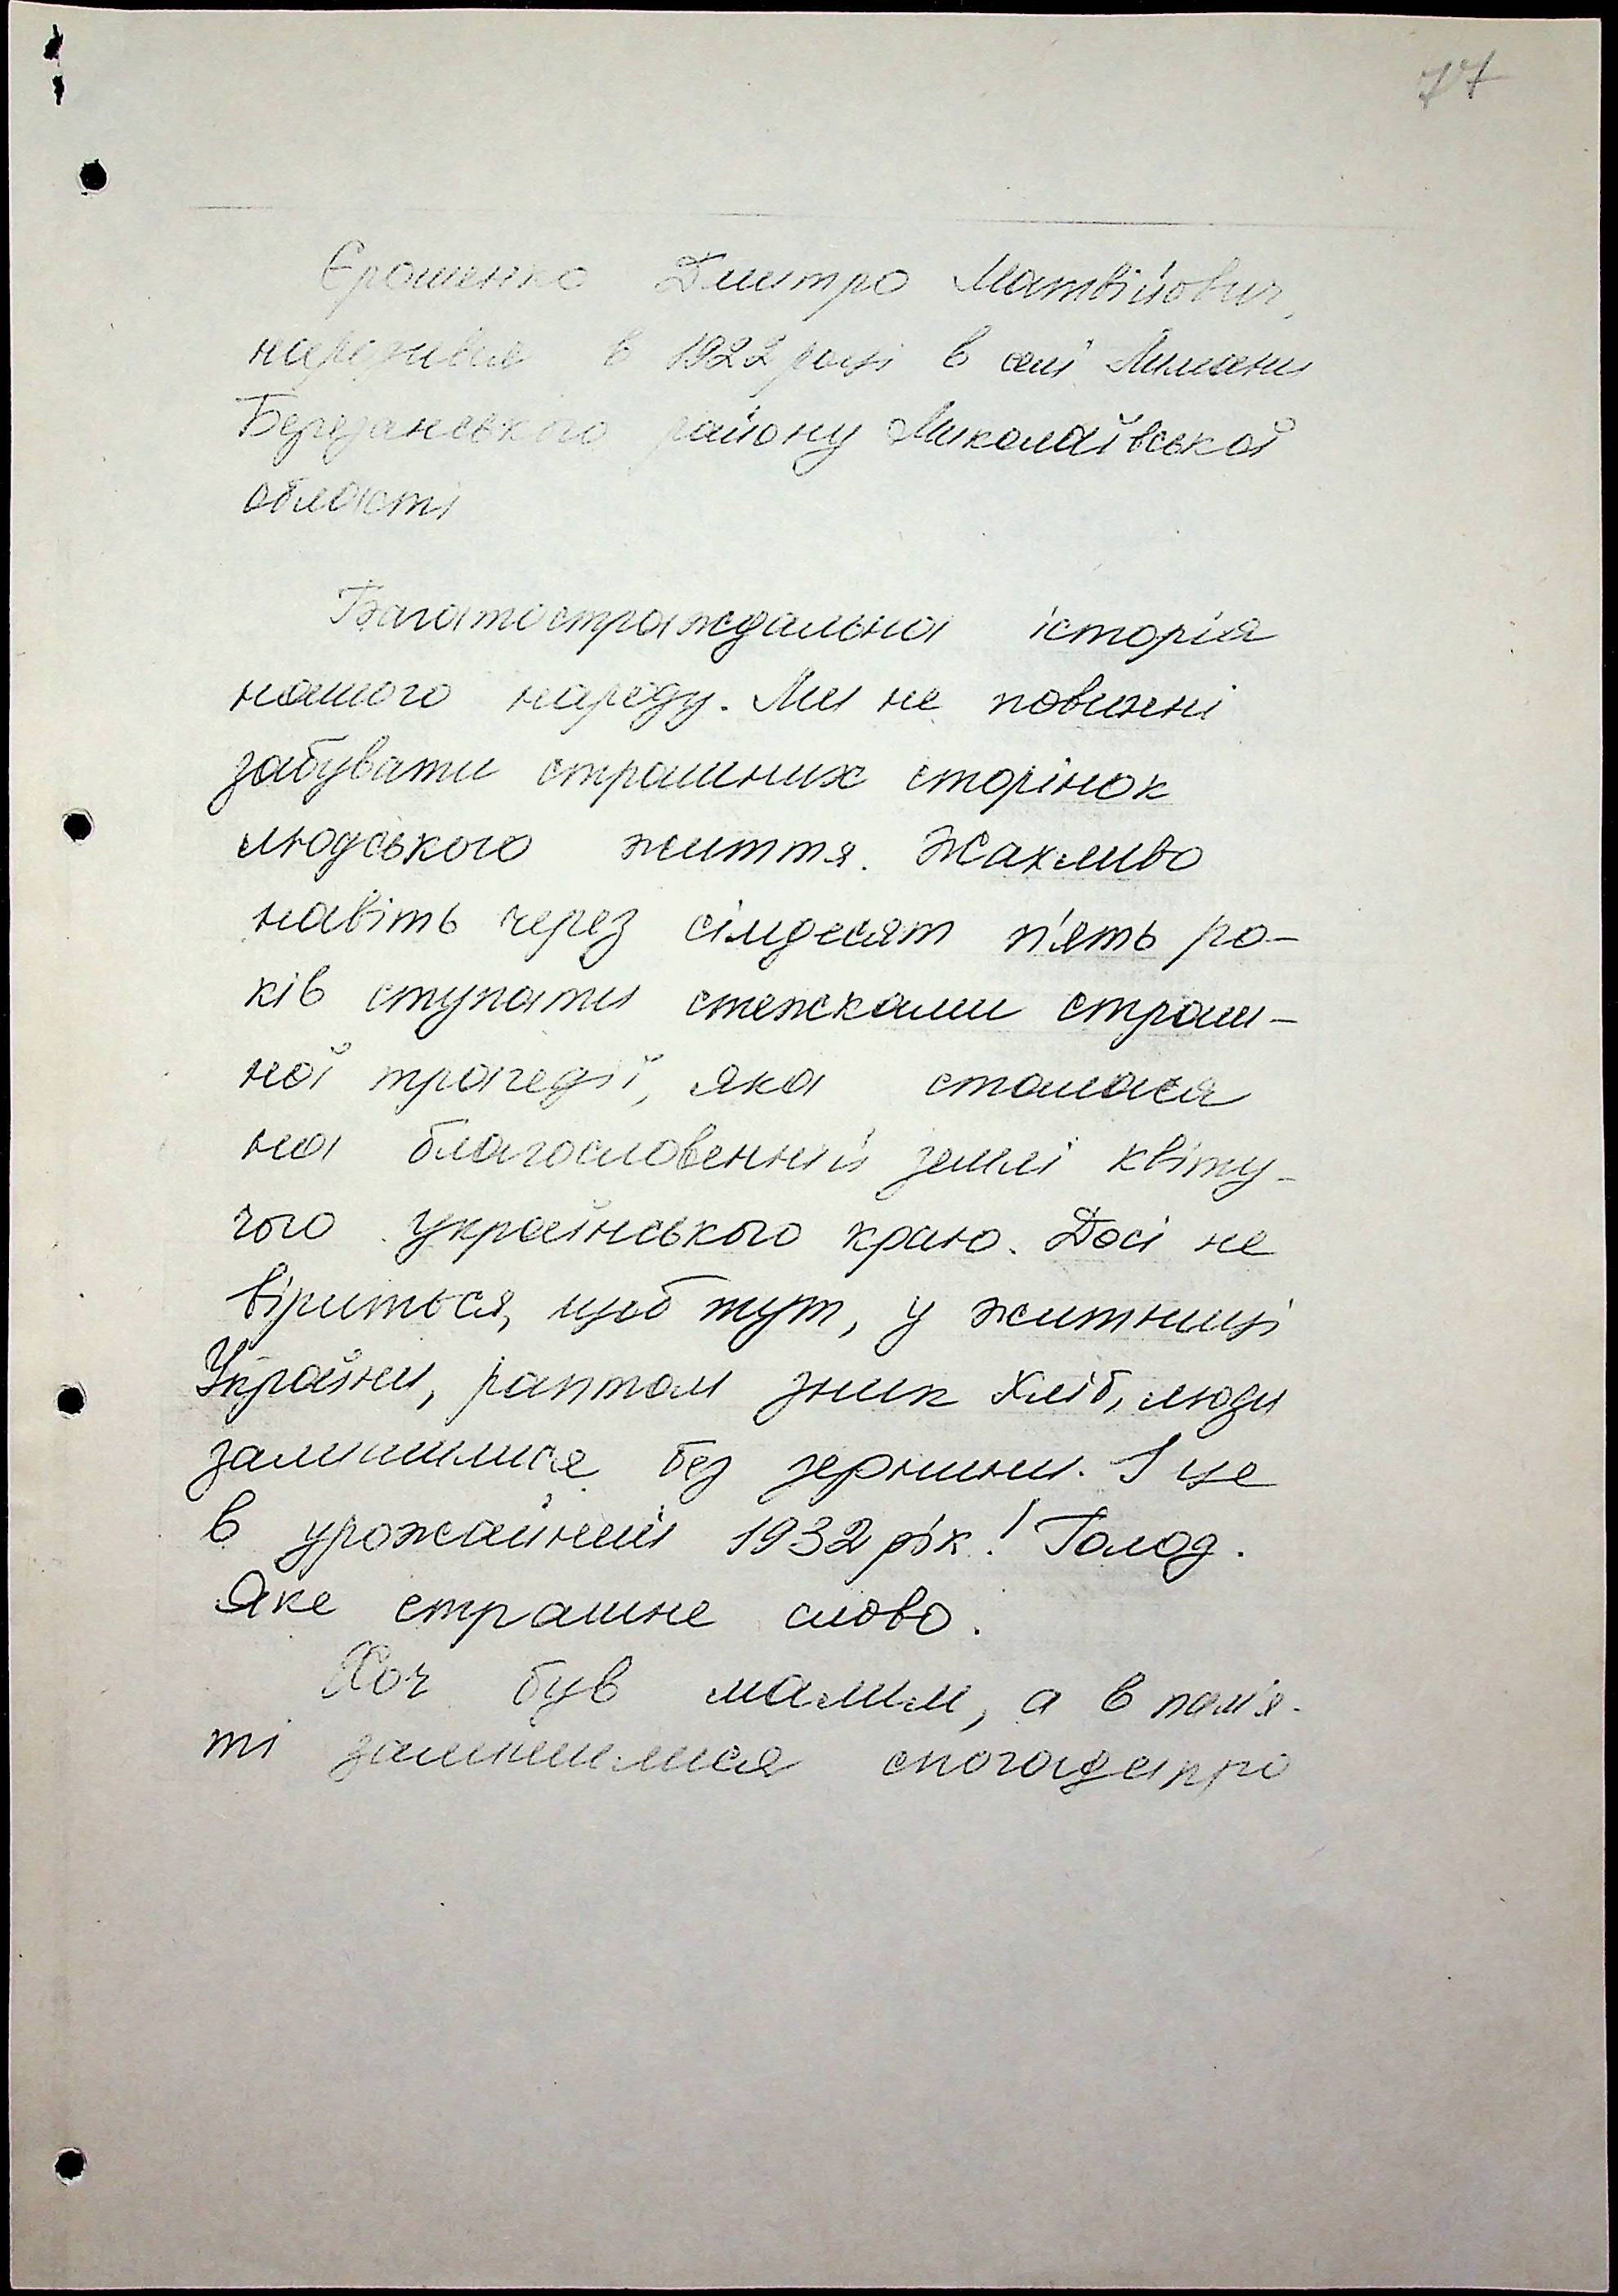 77
Єрошенко Дмитро Матвійович,
народився в 1922 році в селі Лимани
Березанського району Миколаївської
області
Багатостраждальна історія
нашого народу. Ми не повинні
забувати страшних сторінок
людського життя. Жахливо
навіть через сімдесят п'ять ро-
ків ступати стежками страш-
ної трагедії, яка сталася
на благословенній землі квіту-
чого українського краю. Досі не
віриться, щоб тут, у житниці
України, раптом зник хліб, люди
залишилися без зернини. І це
в урожайний 1932 рік! Голод.
Яке страшне слово.
Хоч був малим, а в пам'я-
ті залишилися спогади про